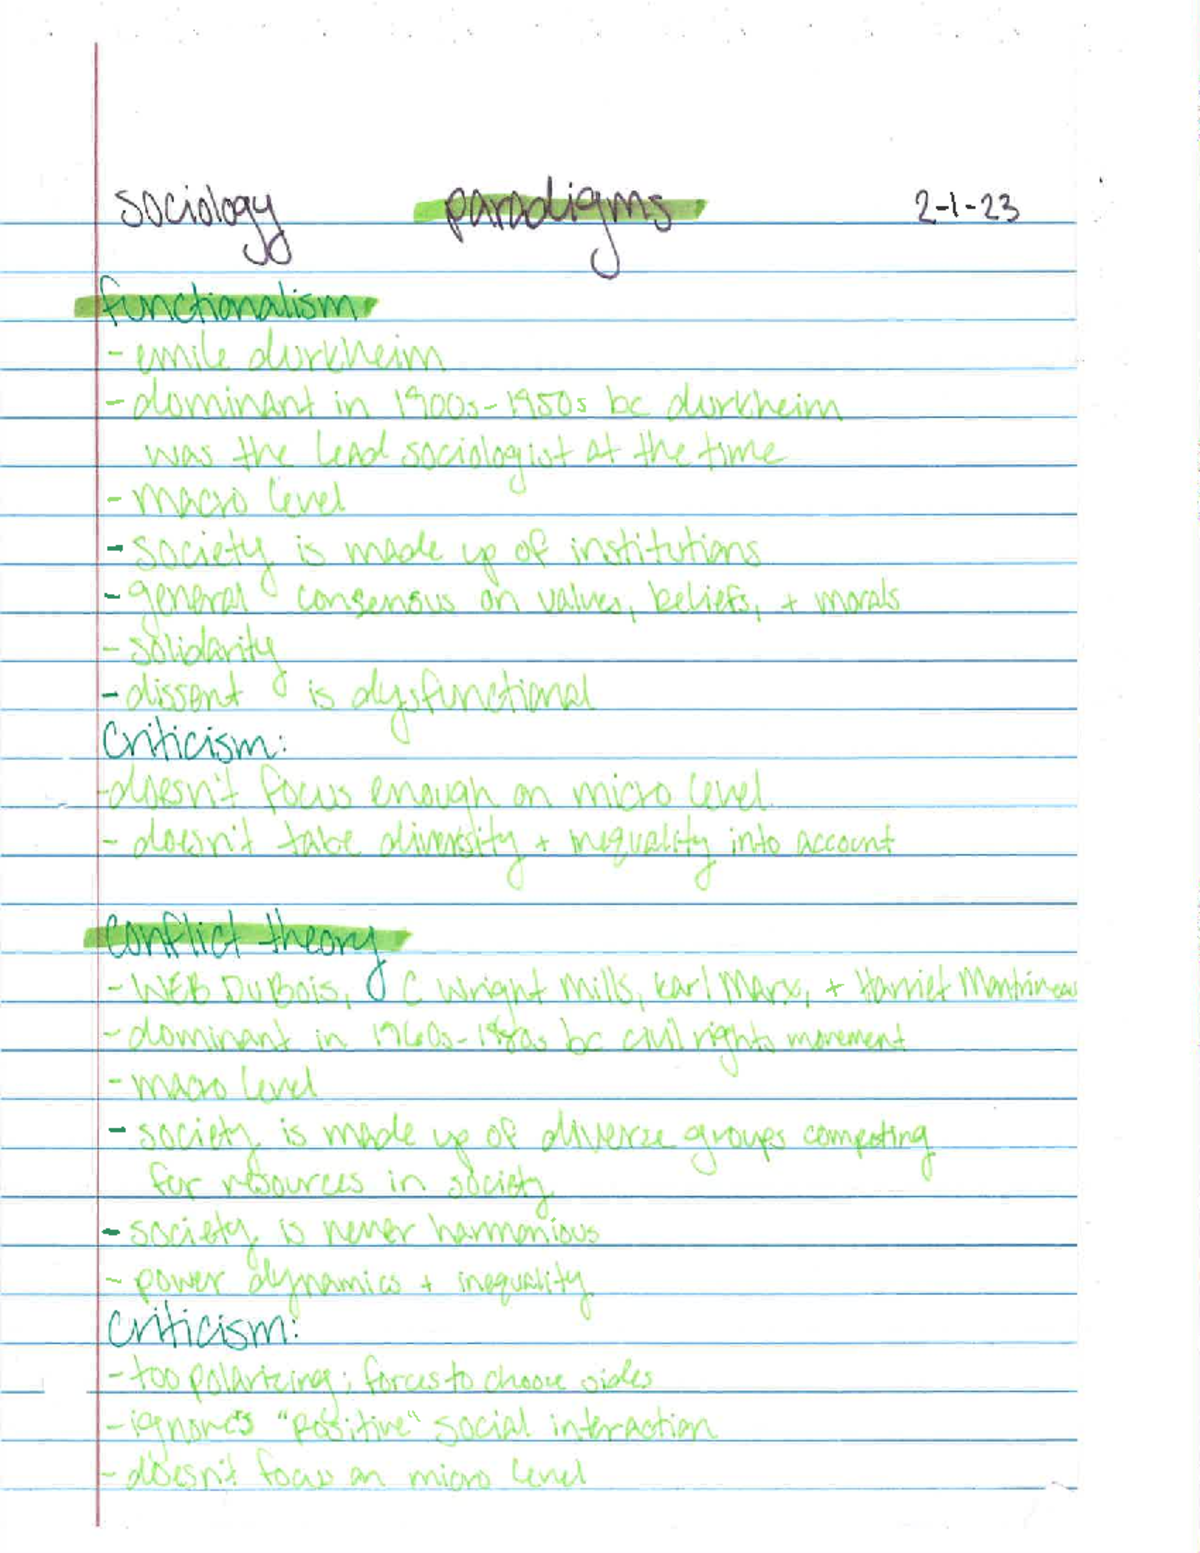 sociology paradigms 2-1-23
functionalism
- emile durkheim
- dominant in 1900s-1950s bc durkheim
was the lead sociologist at the time
- macro level
- society is made up of institutions
- general consensus on values, beliefs, + morals
- solidarity
- dissent is dysfunctional
Criticism:
- doesn't focus enough on micro level
- doesn't take diversity + inequality into account
conflict theory
- WEB DuBois, C Wright Mills, Karl Marx, + Harriet
- dominant in 1960s-1980s bc civil rights movement
- macro level
- society is made up of diverse groups competing
for resources in society
- society is never harmonious
- power dynamics + inequality
Criticism:
- too polarizing; forces to choose sides
- ignores "positive" social interaction
- doesn't focus on micro level